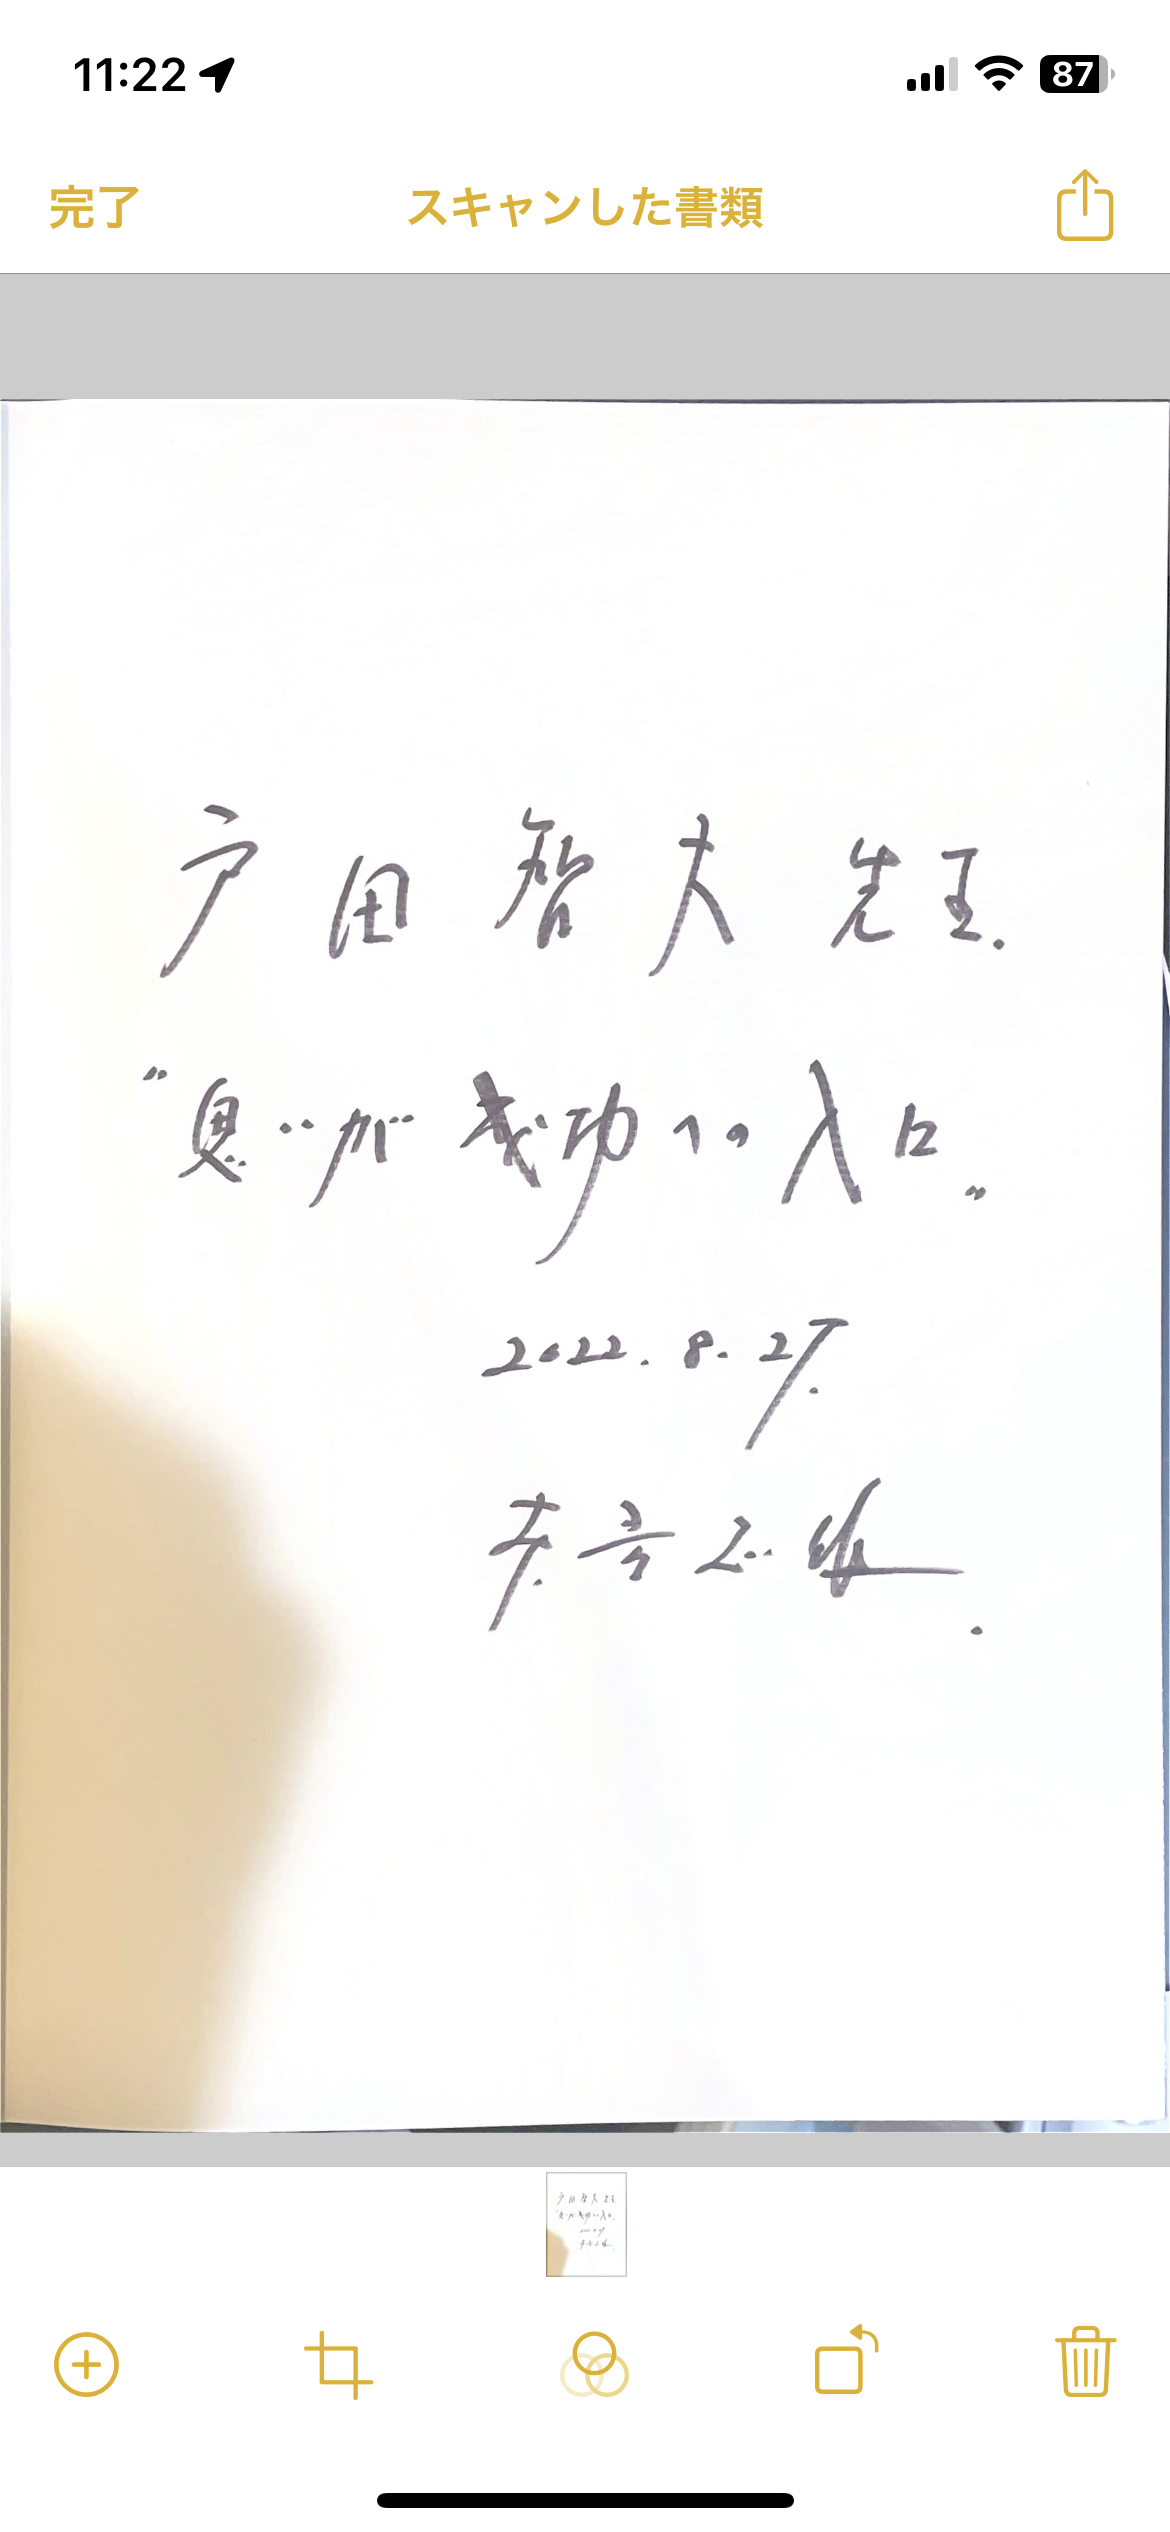 11:22
87
完了 スキャンした書類
戸田智夫先生.
"思いが成功への入口"
2022.8.27.